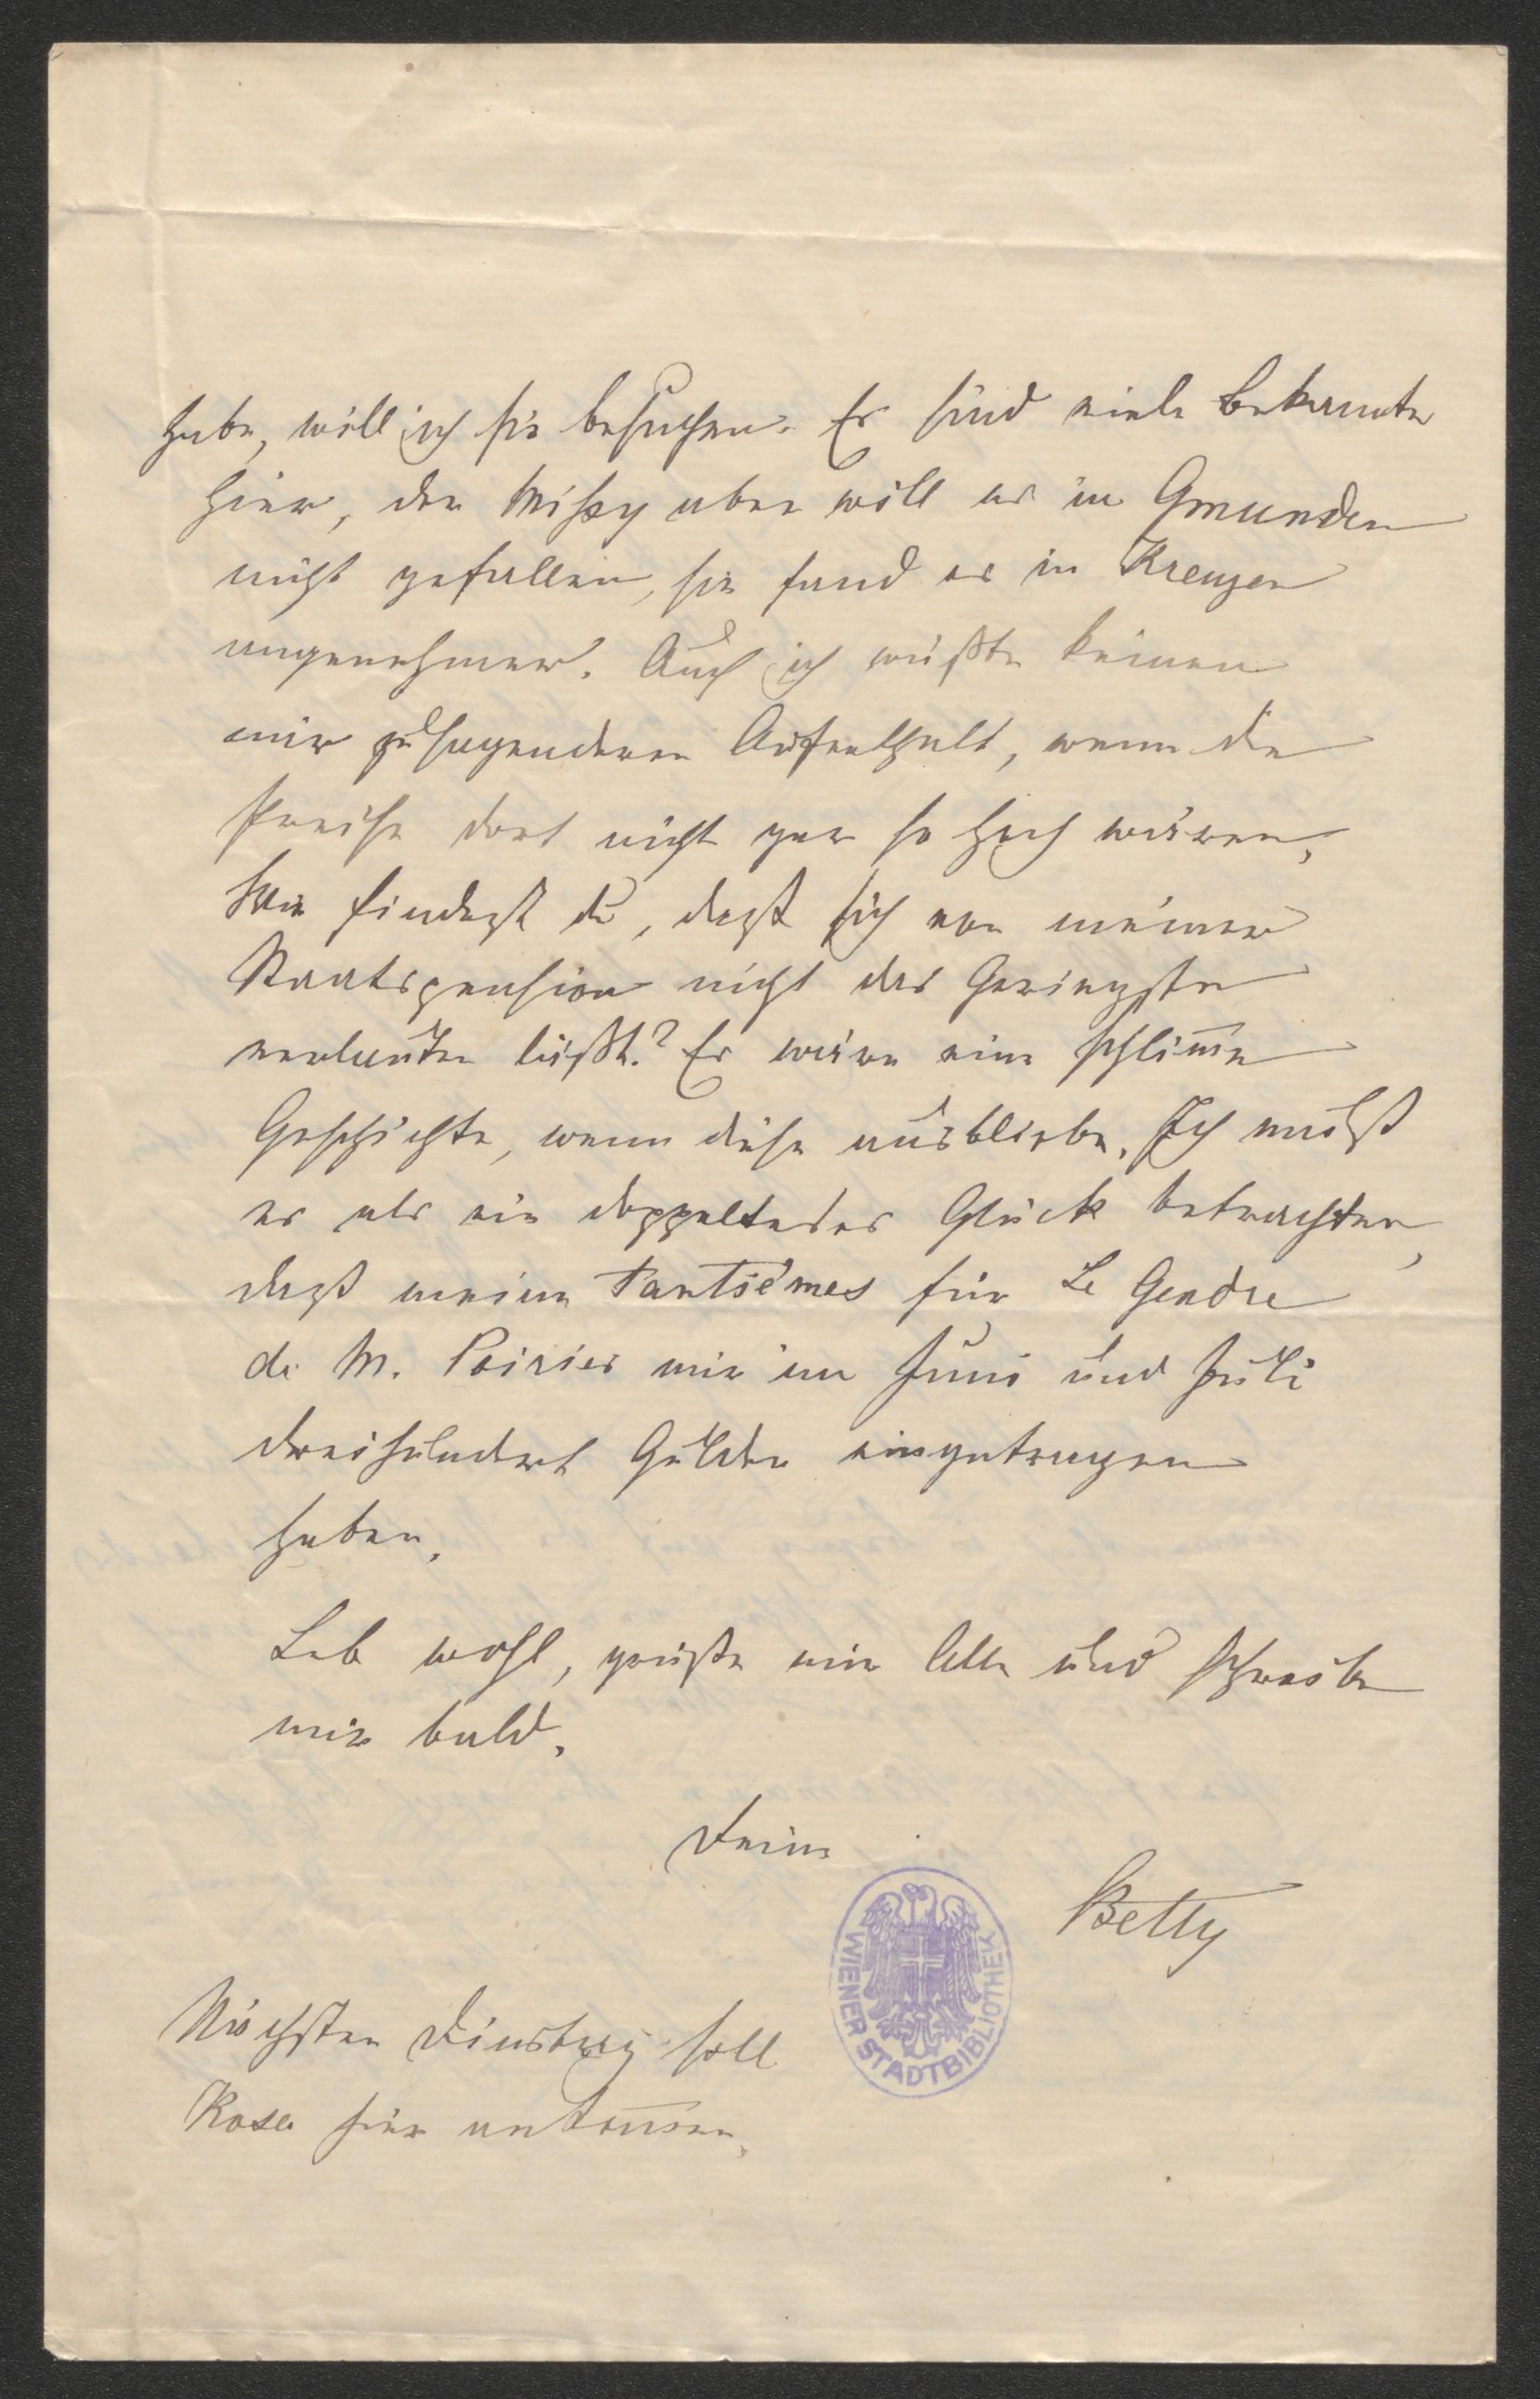 habe, will ich sie besuchen. Es sind viele Bekannte
hier, der Missy aber will es in Gmunden
nicht gefallen, sie fand es in Kreuzen
angenehmer. Auch ich wüßte keinen
mir zusagenderen Aufenthalt, wenn die
Preise dort nicht gar so hoch wären,
Wie findest du, daß sich von meiner
Staatspension nicht das Geringste
verlauten läßt? Es wäre eine schlim̅e
Geschichte, wenn diese ausbliebe. Ich muß
es als ein doppeltes Glück betrachten,
daß meine Tantièmes für Le Gendre
de M. Poirier mir im Juni und Juli
dreihundert Gulden eingetragen
haben.
Leb wohl, grüße mir Alle und schreibe
mir bald.
Deine
Betty
WIENER STADTBIBLIOTHEK
Nächsten Dienstag soll
Rosa hier ankom̅en.